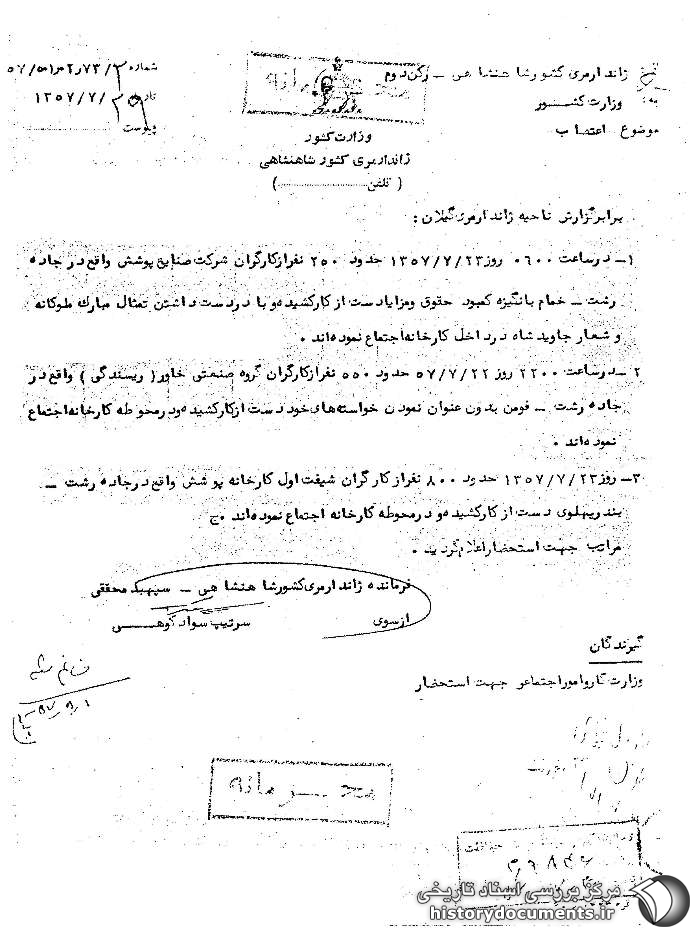 ژاندارمری کشور شاهنشاهی – رکن دوم
به: وزارت کشور
موضوع اعتصاب
شماره
تاریخ ۱۳۵۷/۷/
پیوست
محرمانه
وزارت کشور
ژاندارمری کشور شاهنشاهی
(تلفن)
برابر گزارش ناحیه ژاندارمری گیلان:
۱– در ساعت ۰۶۰۰ روز ۱۳۵۷/۷/۲۳ حدود ۲۵۰ نفر از کارگران شرکت صنایع پوشش واقع در جاده
رشت – خمام با نگیزه کمبود حقوق و مزایا دست از کار کشیده و با در دست داشتن تمثال مبارک ملوکانه
و شعار جاوید شاه در داخل کارخانه اجتماع نموده‌اند.
۲– در ساعت ۲۲۰۰ روز ۵۷/۷/۲۲ حدود ۵۵۰ نفر از کارگران گروه صنعتی خاور (ریسندگی) واقع در
جاده رشت – فومن بدون عنوان نمودن خواسته‌های خود دست از کار کشیده و در محوطه کارخانه اجتماع
نموده‌اند.
۳– روز ۱۳۵۷/۷/۲۳ حدود ۸۰۰ نفر از کارگران شیفت اول کارخانه پوشش واقع در جاده رشت –
بندر پهلوی دست از کار کشیده و در محوطه کارخانه اجتماع نموده‌اند. ج
مراتب جهت استحضار اعلام گردید.
فرمانده ژاندارمری کشور شاهنشاهی – سپهبد محققی
از سوی سرتیپ سواد کوهی
گیرندگان
وزارت کار و امور اجتماعی جهت استحضار
محرمانه
مرکز بررسی اسناد تاریخی
historydocuments.ir